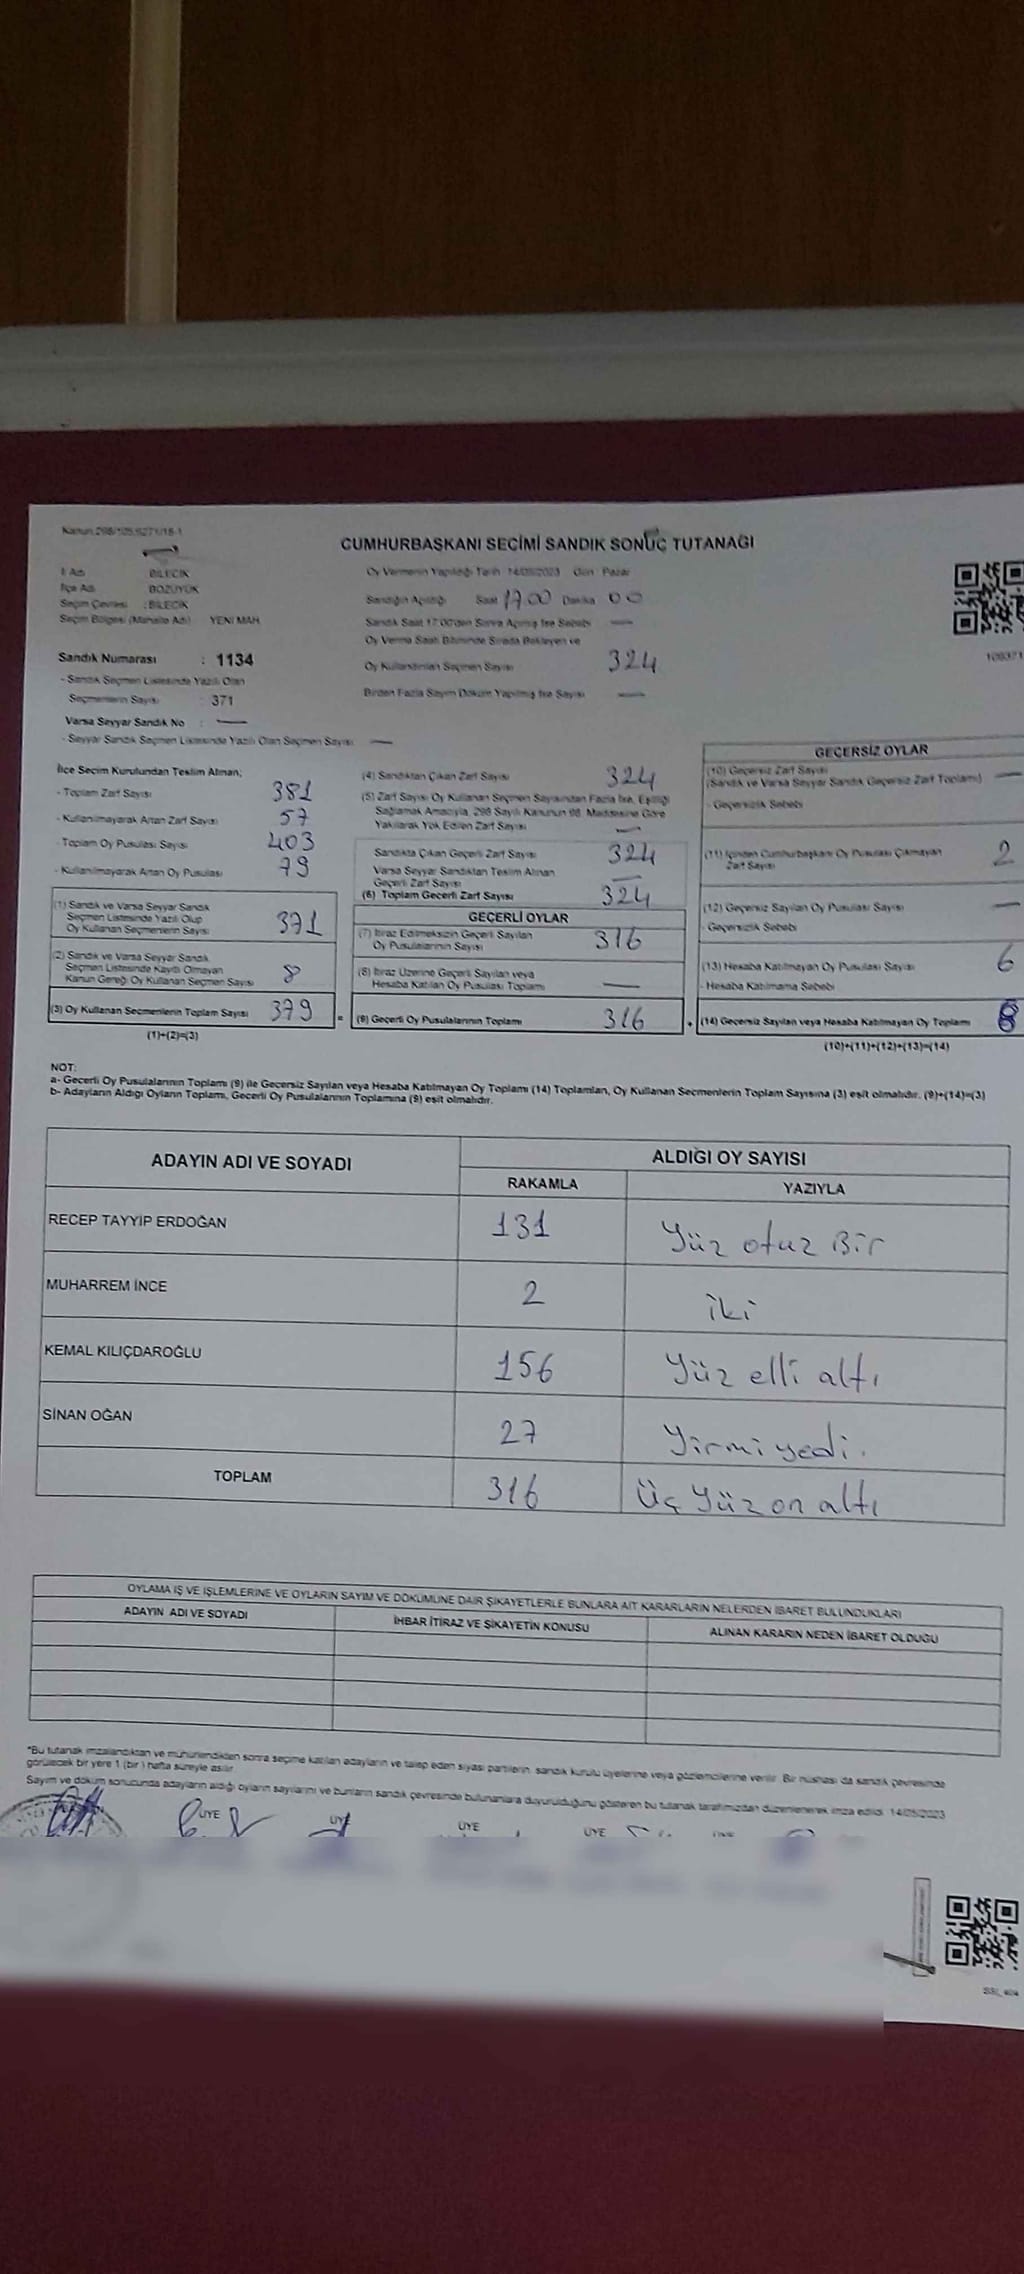 CUMHURBAŞKANI SEÇİMİ SANDIK SONUÇ TUTANAĞI
İl Adı BİLECİK
İlçe Adı BOZÜYÜK
Seçim Çevresi : BİLECİK
Seçim Bölgesi (Mahalle Adı) YENİ MAH.
Sandık Numarası : 1134
- Sandık Seçmen Listesinde Yazılı Olan
Seçmenlerin Sayısı : 371
Varsa Seyyar Sandık No : —
- Seyyar Sandık Seçmen Listesinde Yazılı Olan Seçmen Sayısı —
Oy Vermenin Yapıldığı Tarih 14/05/2023 Gün : Pazar
Sandığın Açıldığı Saat 17.00 Dakika 00
Sandık Saat 17:00'den Sonra Açılmış İse Sebebi —
Oy Verme Saati Bitiminde Sırada Bekleyen ve
Oy Kullandırılan Seçmen Sayısı 324
Birden Fazla Sayım Döküm Yapılmış İse Sayısı —
İlçe Seçim Kurulundan Teslim Alınan;
- Toplam Zarf Sayısı 381
- Kullanılmayarak Artan Zarf Sayısı 57
- Toplam Oy Pusulası Sayısı 403
- Kullanılmayarak Artan Oy Pusulası 79
(1) Sandık ve Varsa Seyyar Sandık
Seçmen Listesinde Yazılı Olup
Oy Kullanan Seçmenlerin Sayısı 371
(2) Sandık ve Varsa Seyyar Sandık
Seçmen Listesinde Kayıtlı Olmayan
Kanun Gereği Oy Kullanan Seçmen Sayısı 8
(3) Oy Kullanan Seçmenlerin Toplam Sayısı 379
(1)+(2)=(3)
(4) Sandıktan Çıkan Zarf Sayısı 324
(5) Zarf Sayısı Oy Kullanan Seçmen Sayısından Fazla İse, Eşitliği
Sağlamak Amacıyla, 298 Sayılı Kanunun 98. Maddesine Göre
Yakılarak Yok Edilen Zarf Sayısı —
Sandıkta Çıkan Geçerli Zarf Sayısı 324
Varsa Seyyar Sandıktan Teslim Alınan
Geçerli Zarf Sayısı —
(6) Toplam Geçerli Zarf Sayısı 324
GEÇERLİ OYLAR
(7) İtiraz Edilmeksizin Geçerli Sayılan
Oy Pusulalarının Sayısı 316
(8) İtiraz Üzerine Geçerli Sayılan veya
Hesaba Katılan Oy Pusulası Toplamı —
(9) Geçerli Oy Pusulalarının Toplamı 316
GEÇERSİZ OYLAR
(10) Geçersiz Zarf Sayısı
(Sandık ve Varsa Seyyar Sandık Geçersiz Zarf Toplamı) —
- Geçersizlik Sebebi
(11) İçinden Cumhurbaşkanı Oy Pusulası Çıkmayan
Zarf Sayısı 2
(12) Geçersiz Sayılan Oy Pusulası Sayısı —
- Geçersizlik Sebebi
(13) Hesaba Katılmayan Oy Pusulası Sayısı 6
- Hesaba Katılmama Sebebi
(14) Geçersiz Sayılan veya Hesaba Katılmayan Oy Toplamı 8
(10)+(11)+(12)+(13)=(14)
NOT:
a- Geçerli Oy Pusulalarının Toplamı (9) ile Geçersiz Sayılan veya Hesaba Katılmayan Oy Toplamı (14) Toplamları, Oy Kullanan Seçmenlerin Toplam Sayısına (3) eşit olmalıdır. (9)+(14)=(3)
b- Adayların Aldığı Oyların Toplamı, Geçerli Oy Pusulalarının Toplamına (9) eşit olmalıdır.
ADAYIN ADI VE SOYADI ALDIĞI OY SAYISI
RAKAMLA YAZIYLA
RECEP TAYYİP ERDOĞAN 131 Yüz otuz Bir
MUHARREM İNCE 2 iki
KEMAL KILIÇDAROĞLU 156 Yüz elli altı
SİNAN OĞAN 27 Yirmi yedi.
TOPLAM 316 Üç Yüz on altı
OYLAMA İŞ VE İŞLEMLERİNE VE OYLARIN SAYIM VE DÖKÜMÜNE DAİR ŞİKAYETLERLE BUNLARA AİT KARARLARIN NELERDEN İBARET BULUNDUKLARI
ADAYIN ADI VE SOYADI İHBAR İTİRAZ VE ŞİKAYETİN KONUSU ALINAN KARARIN NEDEN İBARET OLDUĞU
*Bu tutanak imzalandıktan ve mühürlendikten sonra seçime katılan adayların ve talep eden siyasi partilerin sandık kurulu üyelerine veya gözlemcilerine verilir. Bir nüshası da sandık çevresinde
görülecek bir yere 1 (bir) hafta süreyle asılır.
Sayım ve döküm sonucunda adayların aldığı oyların sayılarını ve bunların sandık çevresinde bulunanlara duyurulduğunu gösteren bu tutanak tarafımızdan düzenlenerek imza edildi. 14/05/2023
ÜYE ÜYE ÜYE ÜYE